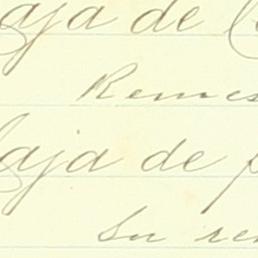 aja de
Remes
aja de
Su re